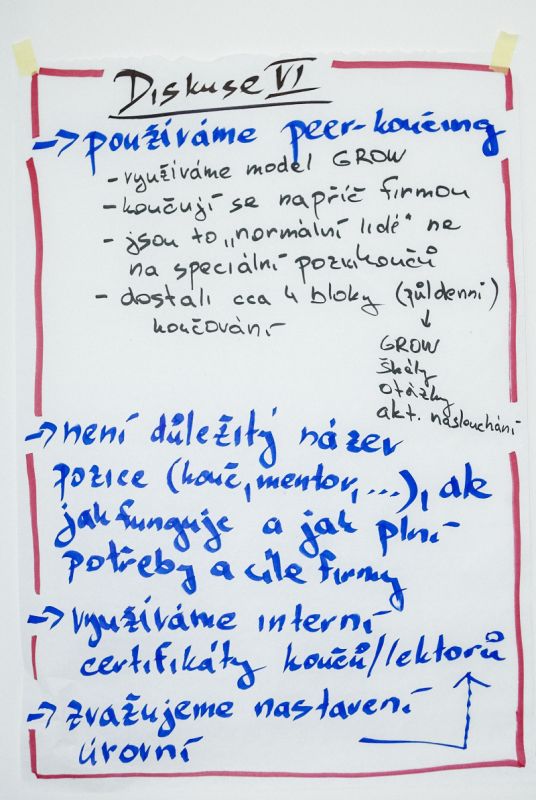 Diskuse VI
→ používáme peer-koučing
- využíváme model GROW
- koučují se napříč firmou
- jsou to „normální lidé" ne
na speciální pozici koučů
- dostali cca 4 bloky (půldenní)
koučování
↓
GROW
škály
otázky
akt. naslouchání
→ není důležitý název
pozice (kouč, mentor, ...), ale
jak funguje a jak plní
potřeby a cíle firmy
→ využíváme interní
certifikáty koučů/lektorů
→ zvažujeme nastavení
úrovní